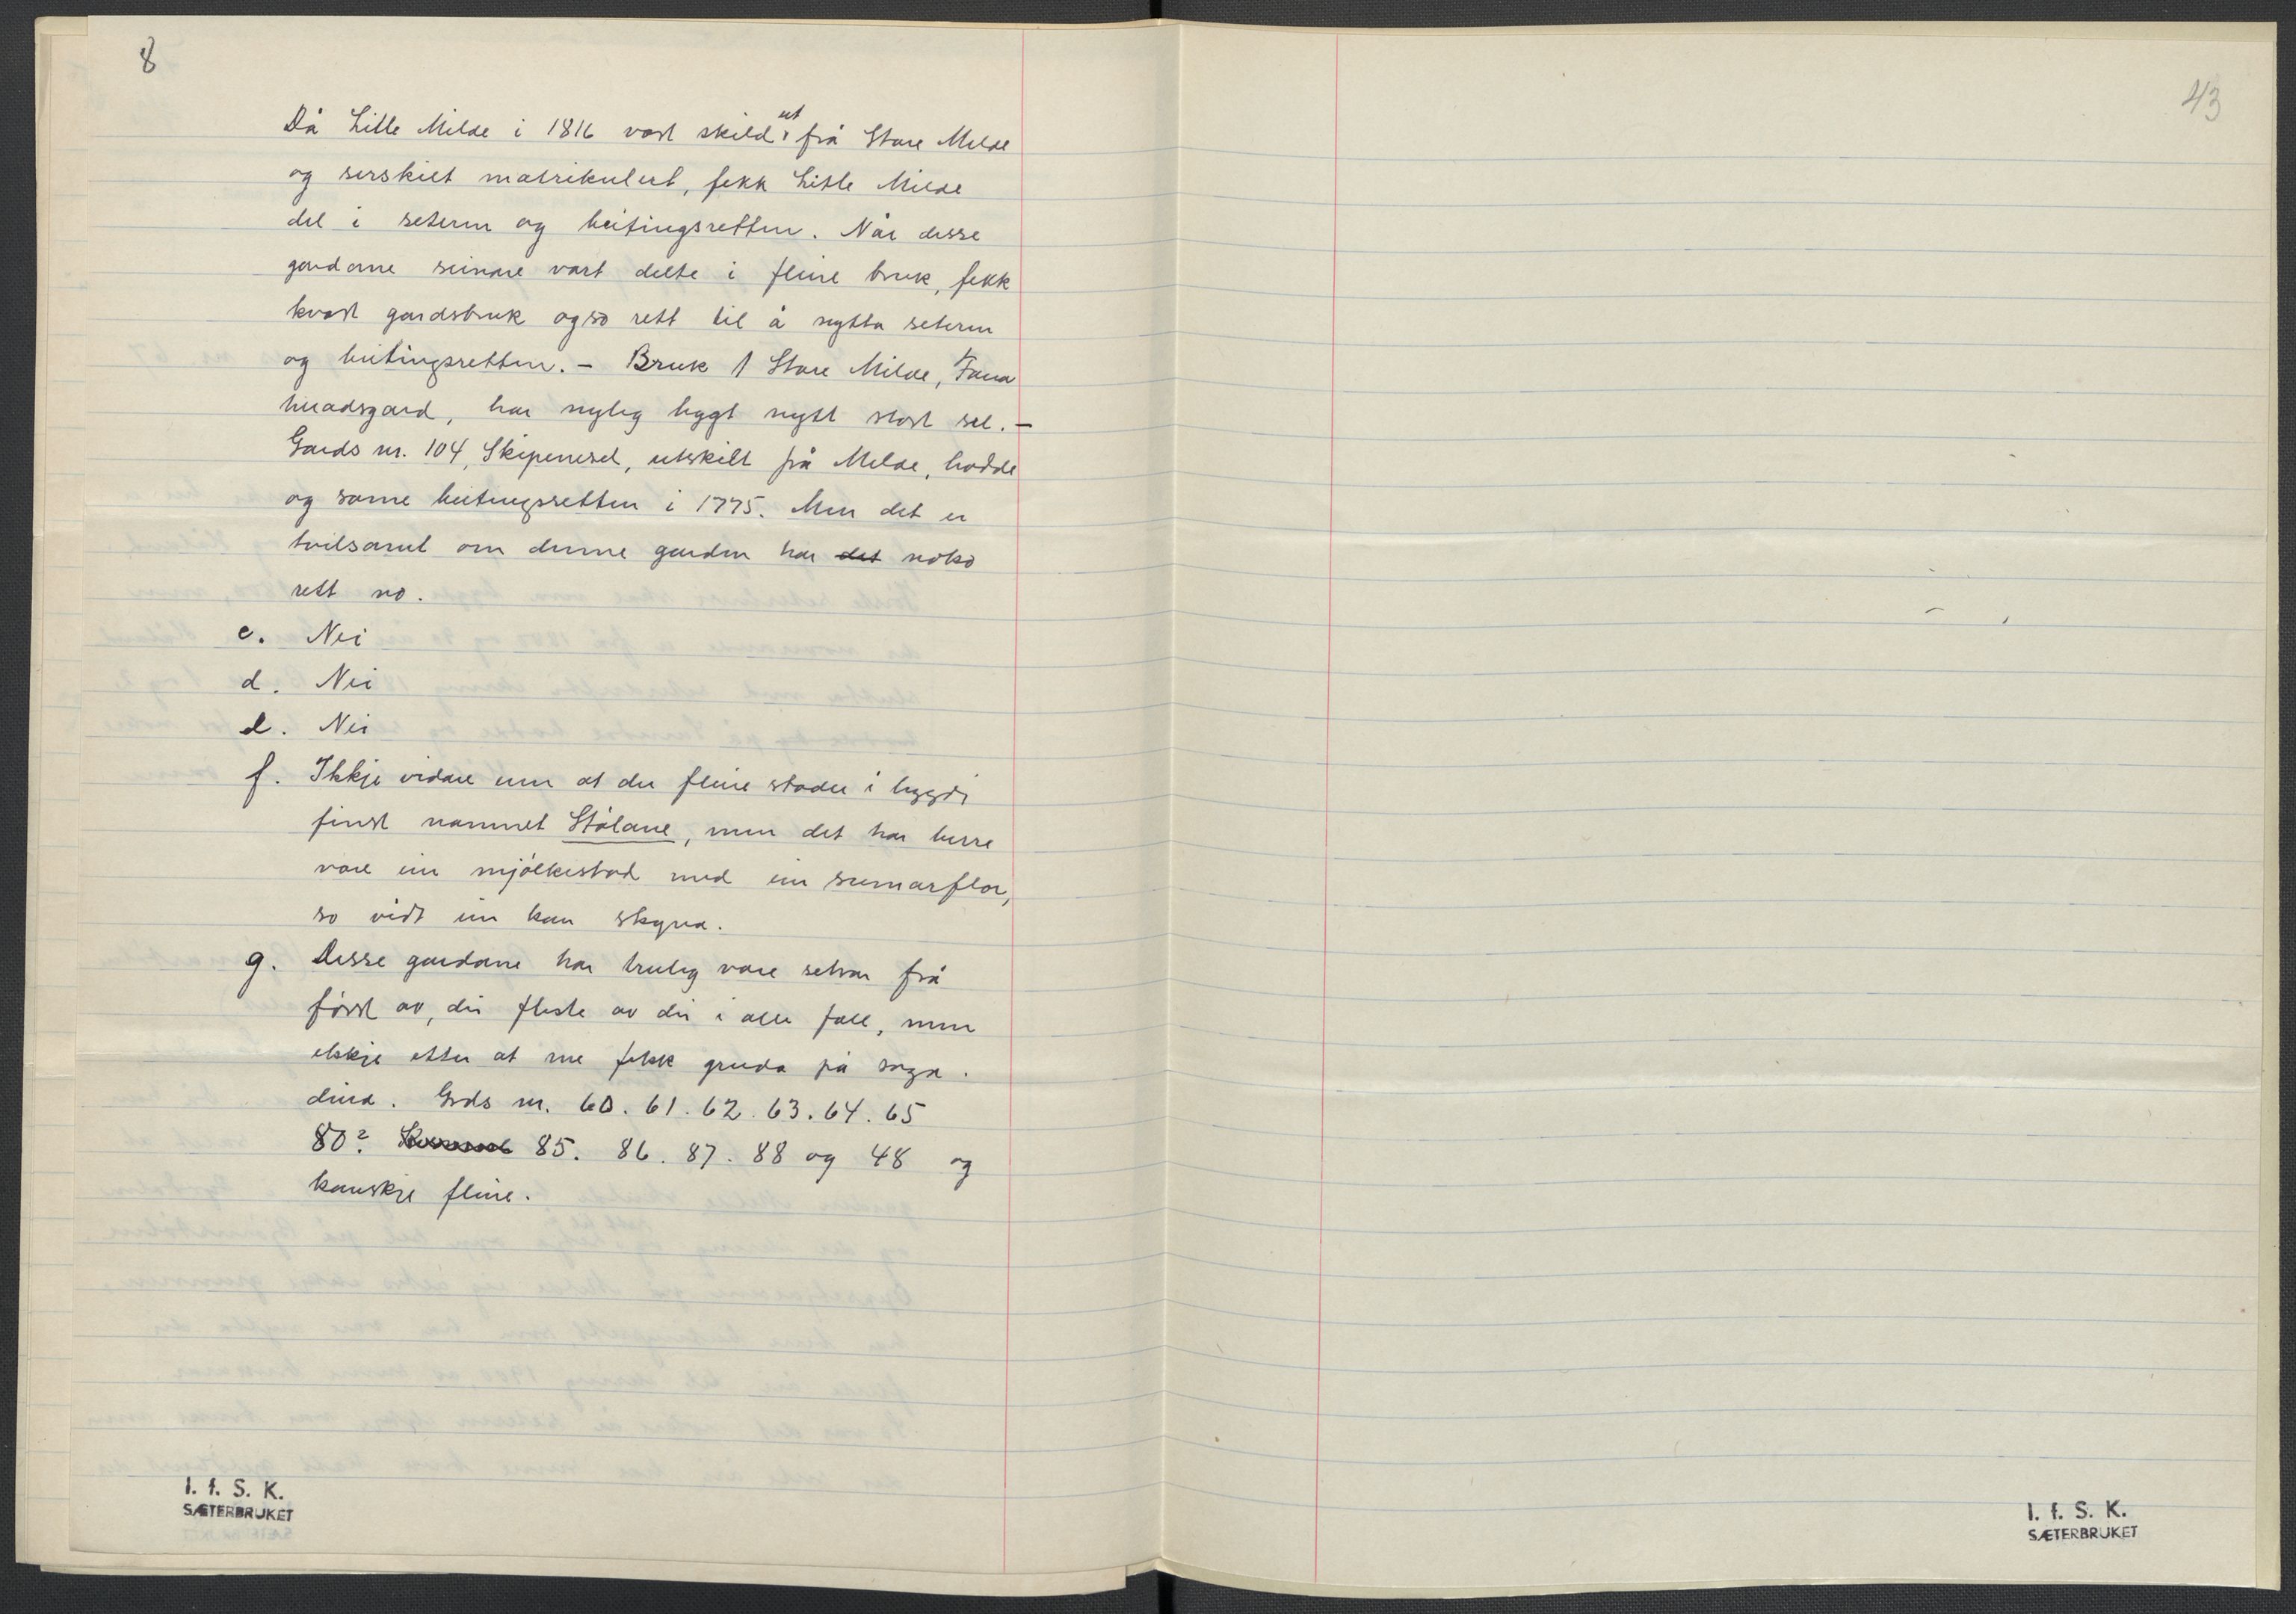 8
43
Då Litle Milde i 1816 vart skild ut frå Store Milde
og serskilt matrikulert, fekk Litle Milde
del i setern og beitingsretten. Når desse
gardane seinare vart delte i fleire bruk, fekk
kvart gardsbruk også rett til å nytta setern
og beitingsretten. – Bruk 1 Store Milde, Fana
heradsgard, har nyleg bygt nytt stort sel. –
Gards nr. 104, Skipenesel, utskilt frå Milde, hadde
og same beitingsretten i 1775. Men det er
tvilsamt om denne garden har det noko
rett no.
c. Nei
d. Nei
e. Nei
f. Ikkje vidare enn at der fleire stader i bygdi
finst namnet Stølane, men det har berre
vore ein mjølkestad med ein sumarflor,
so vidt ein kan skyna.
g. Disse gardane har truleg vore seterar frå
først av, dei fleste av dei i alle fall, men
ikkje etter at me fekk greida på soga.
Grds nr. 60. 61. 62. 63. 64. 65
80? 85. 86. 87. 88 og 48 og
kanskje fleire.
I. f. S. K.
SÆTERBRUKET
I. f. S. K.
SÆTERBRUKET